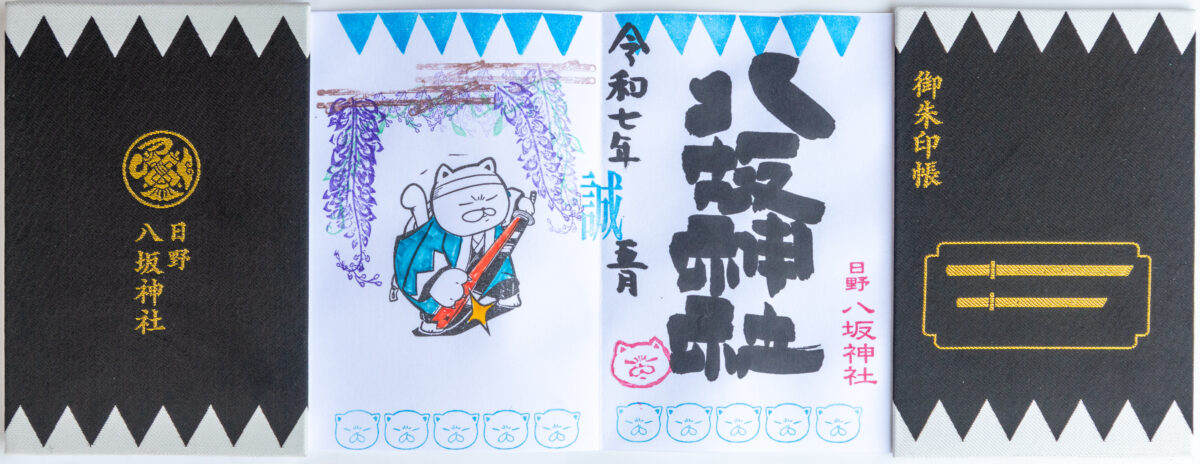 日野
八坂神社
令和七年
五月
誠
八坂神社
日野
八坂神社
御朱印帳